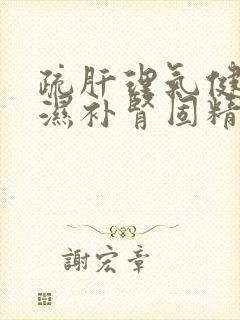 疏肝理氣健
濕补腎固精
謝宏章